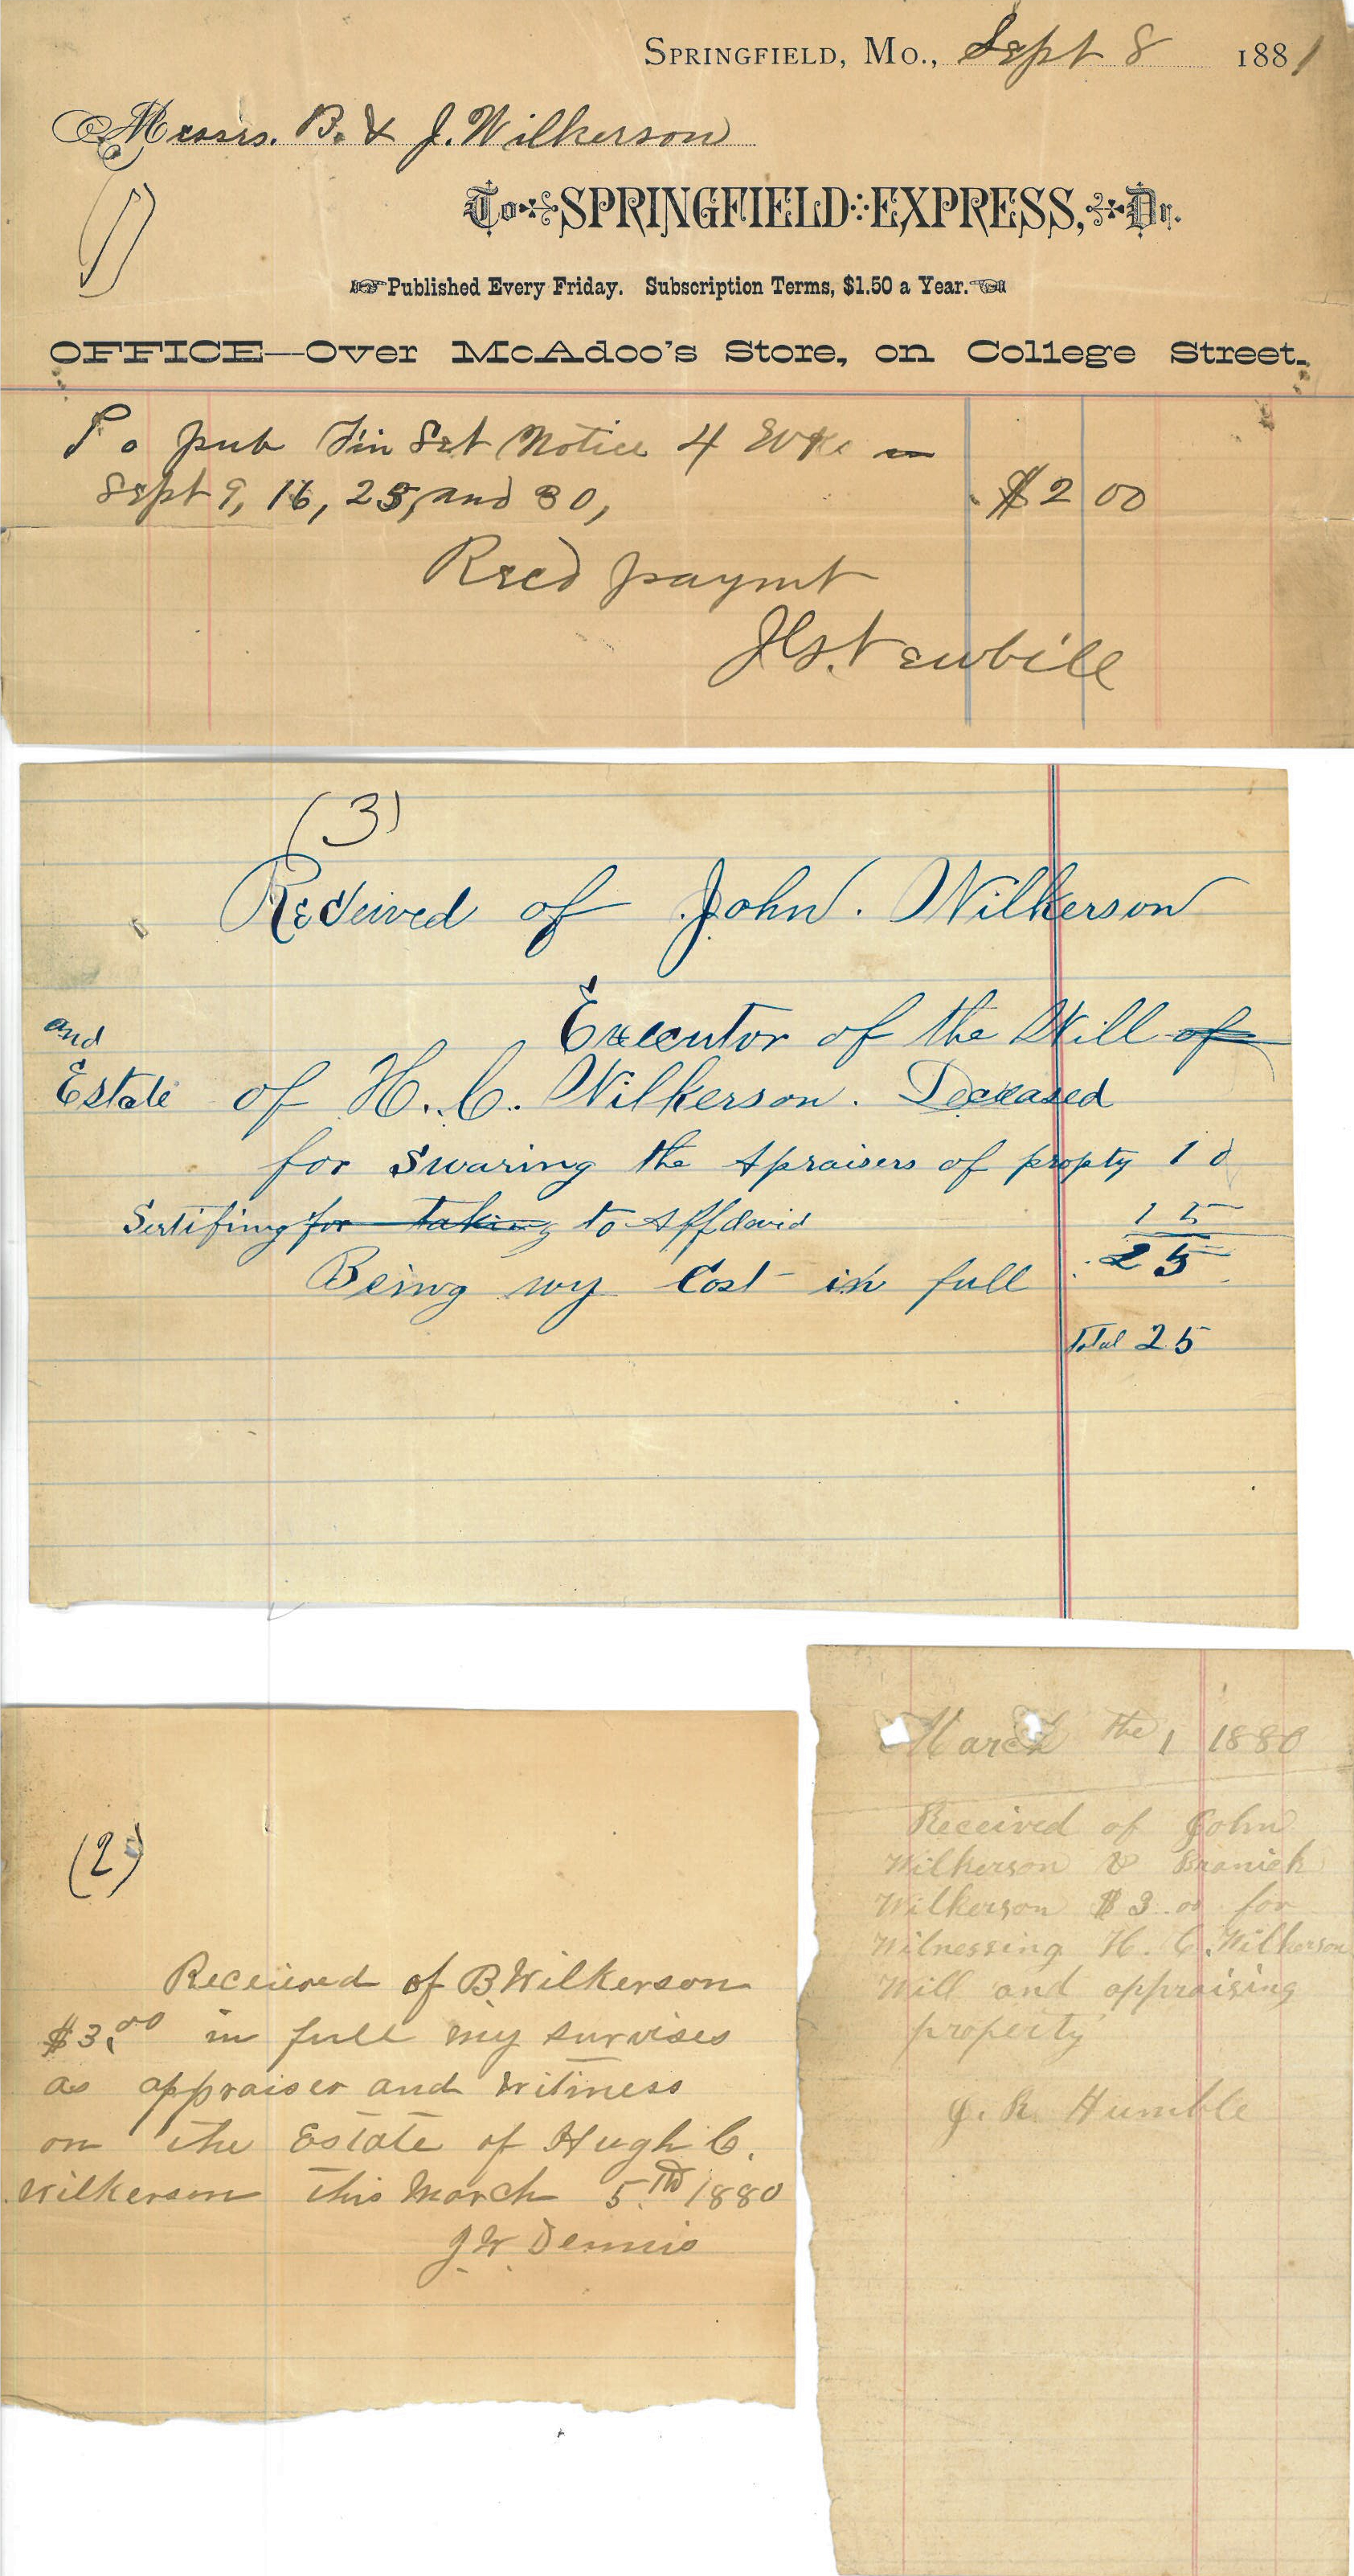 SPRINGFIELD, MO., Sept 8 1881
Messrs. B. & J. Wilkerson
To SPRINGFIELD EXPRESS, Dr.
Published Every Friday. Subscription Terms, $1.50 a Year.
OFFICE—Over McAdoo's Store, on College Street.
To pub Fin Set Notice 4 wks
Sept 9, 16, 23, and 30, $2 00
Recd paymt
J.G. Newbill
(3)
Received of John. Wilkerson
Executor of the Will of
and
Estate of H. C. Wilkerson. Deceased
for Swaring the Apraisers of propty 10
Sertifing for taking to Affdavid 15
25
Being my Cost in full
Total 25
(2)
Received of B. Wilkerson
$3.00 in full my survises
as appraiser and witness
on the Estate of Hugh C.
Wilkerson this March 5th 1880
J W Dennis
March the 1 1880
Received of John
Wilkerson & Branick
Wilkerson $3.00 for
Witnessing H. C. Wilkerson
Will and appraising
property
J. R. Humble